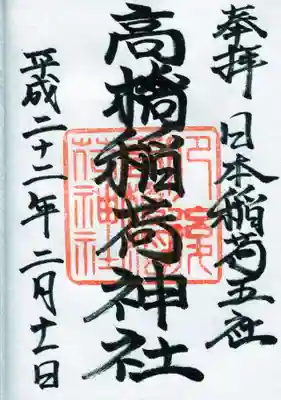 奉拝 日本稲荷五社
高橋稲荷神社
平成二十二年二月十一日